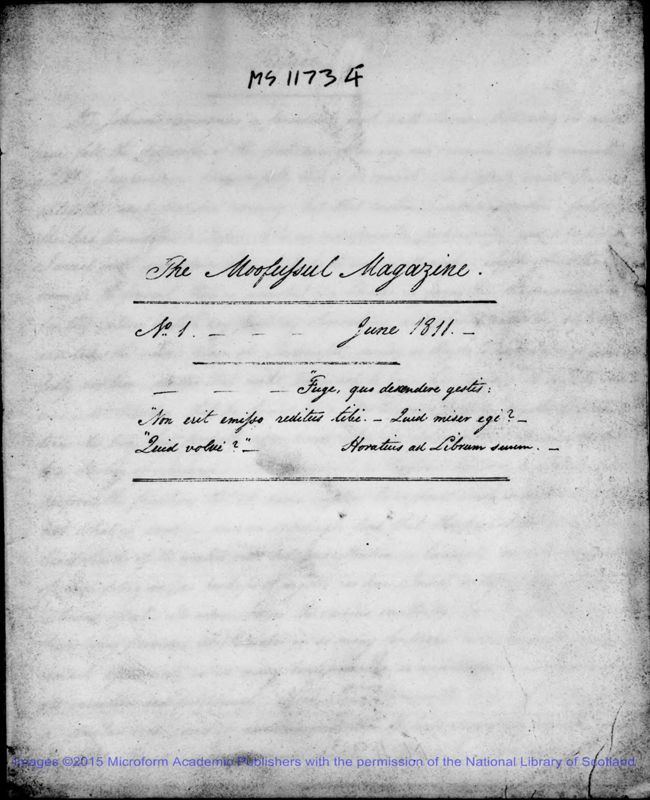 MS 11734
The Moofussul Magazine.
No. 1. — — — June 1811. —
— — — "Fuge, quo descendere gestis:
"Non erit emisso reditus tibi. — Quid miser egi? —
"Quid volui?" — Horatius ad Librum suum. —
Images ©2015 Microform Academic Publishers with the permission of the National Library of Scotland